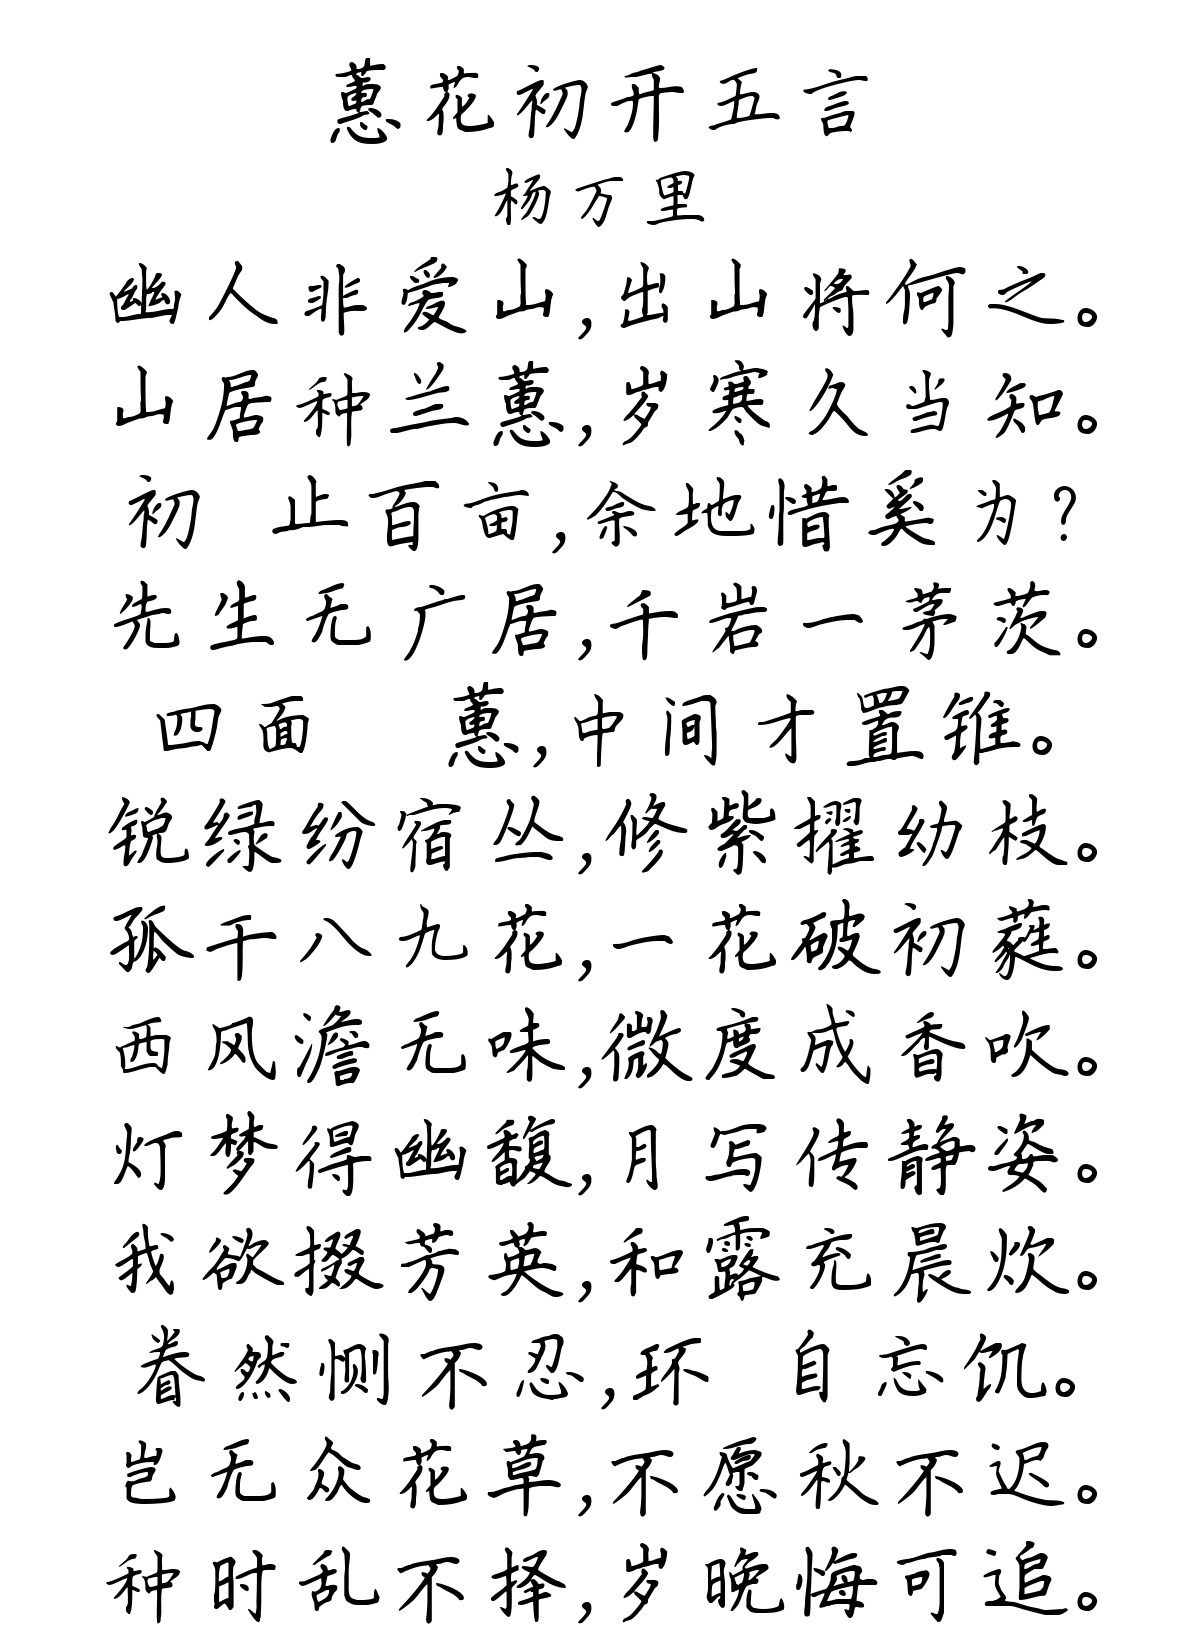 蕙花初开五言
杨万里
幽人非爱山,出山将何之。
山居种兰蕙,岁寒久当知。
初 止百亩,余地惜奚为?
先生无广居,千岩一茅茨。
四面 蕙,中间才置锥。
锐绿纷宿丛,修紫擢幼枝。
孤干八九花,一花破初蕤。
西风澹无味,微度成香吹。
灯梦得幽馥,月写传静姿。
我欲掇芳英,和露充晨炊。
眷然恻不忍,环 自忘饥。
岂无众花草,不愿秋不迟。
种时乱不择,岁晚悔可追。